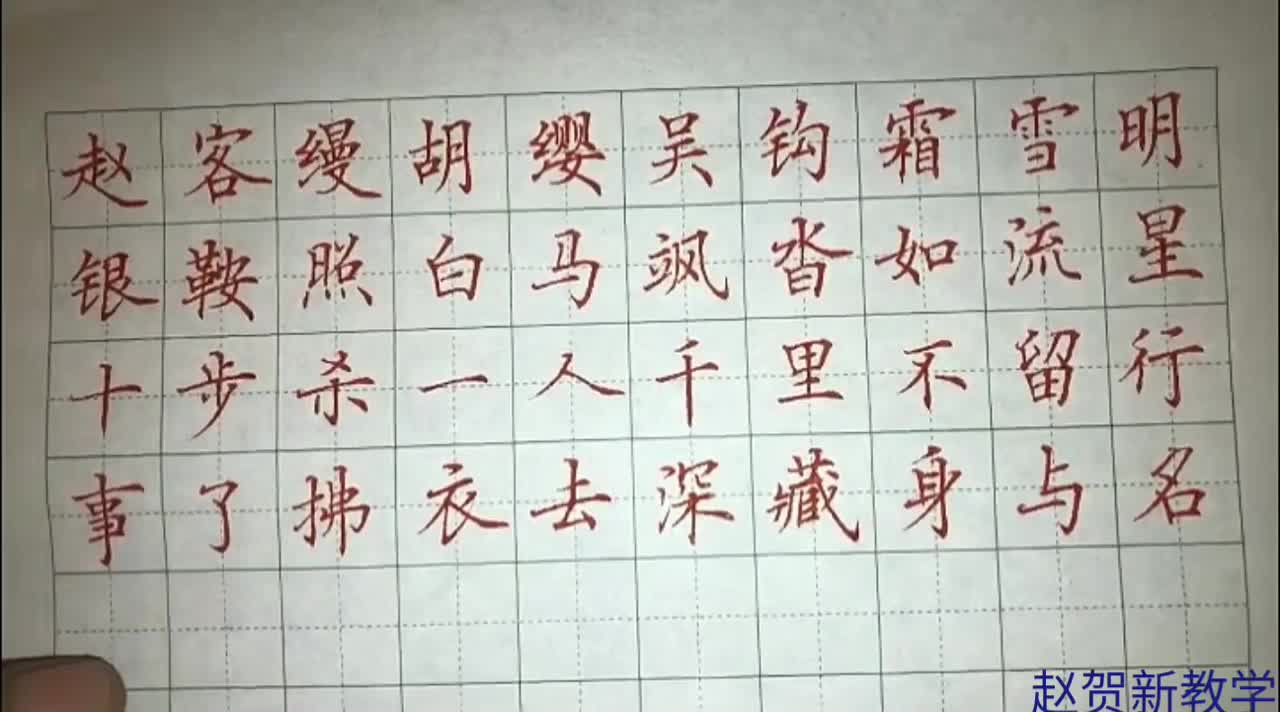 赵客缦胡缨吴钩霜雪明
银鞍照白马飒沓如流星
十步杀一人千里不留行
事了拂衣去深藏身与名
赵贺新教学